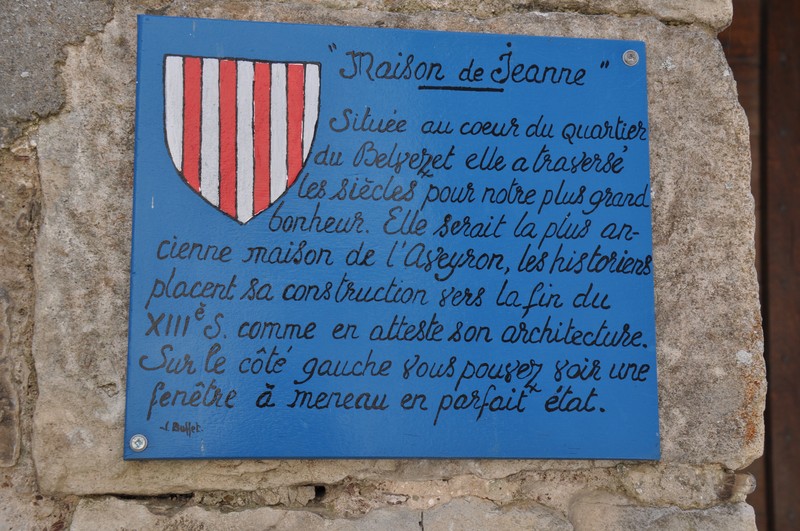 "Maison de Jeanne"
Située au coeur du quartier
du Belvezet elle a traversé
les siècles pour notre plus grand
bonheur. Elle serait la plus an-
cienne maison de l'Aveyron, les historiens
placent sa construction vers la fin du
XIIIè S. comme en atteste son architecture.
Sur le côté gauche vous pouvez voir une
fenêtre à meneau en parfait état.